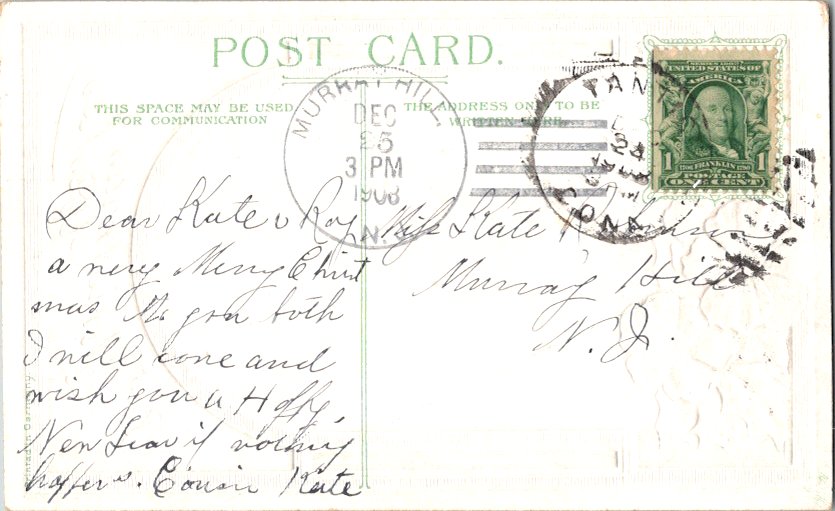 POST CARD.
THIS SPACE MAY BE USED
FOR COMMUNICATION
THE ADDRESS ONLY TO BE
WRITTEN HERE
MURRAY HILL,
DEC
25
3 PM
1908
N.J.
TAN
24
1908
CONN
SERIES 1902
UNITED STATES OF
AMERICA
1706 FRANKLIN 1790
1 1
POSTAGE
ONE CENT
Dear Kate & Roy
a very Merry Christ
mas to you both
I will come and
wish you a Happy
New Year if nothing
happens. Cousin Kate
Miss Kate Robinson
Murray Hill
N. J.
Printed in Germany